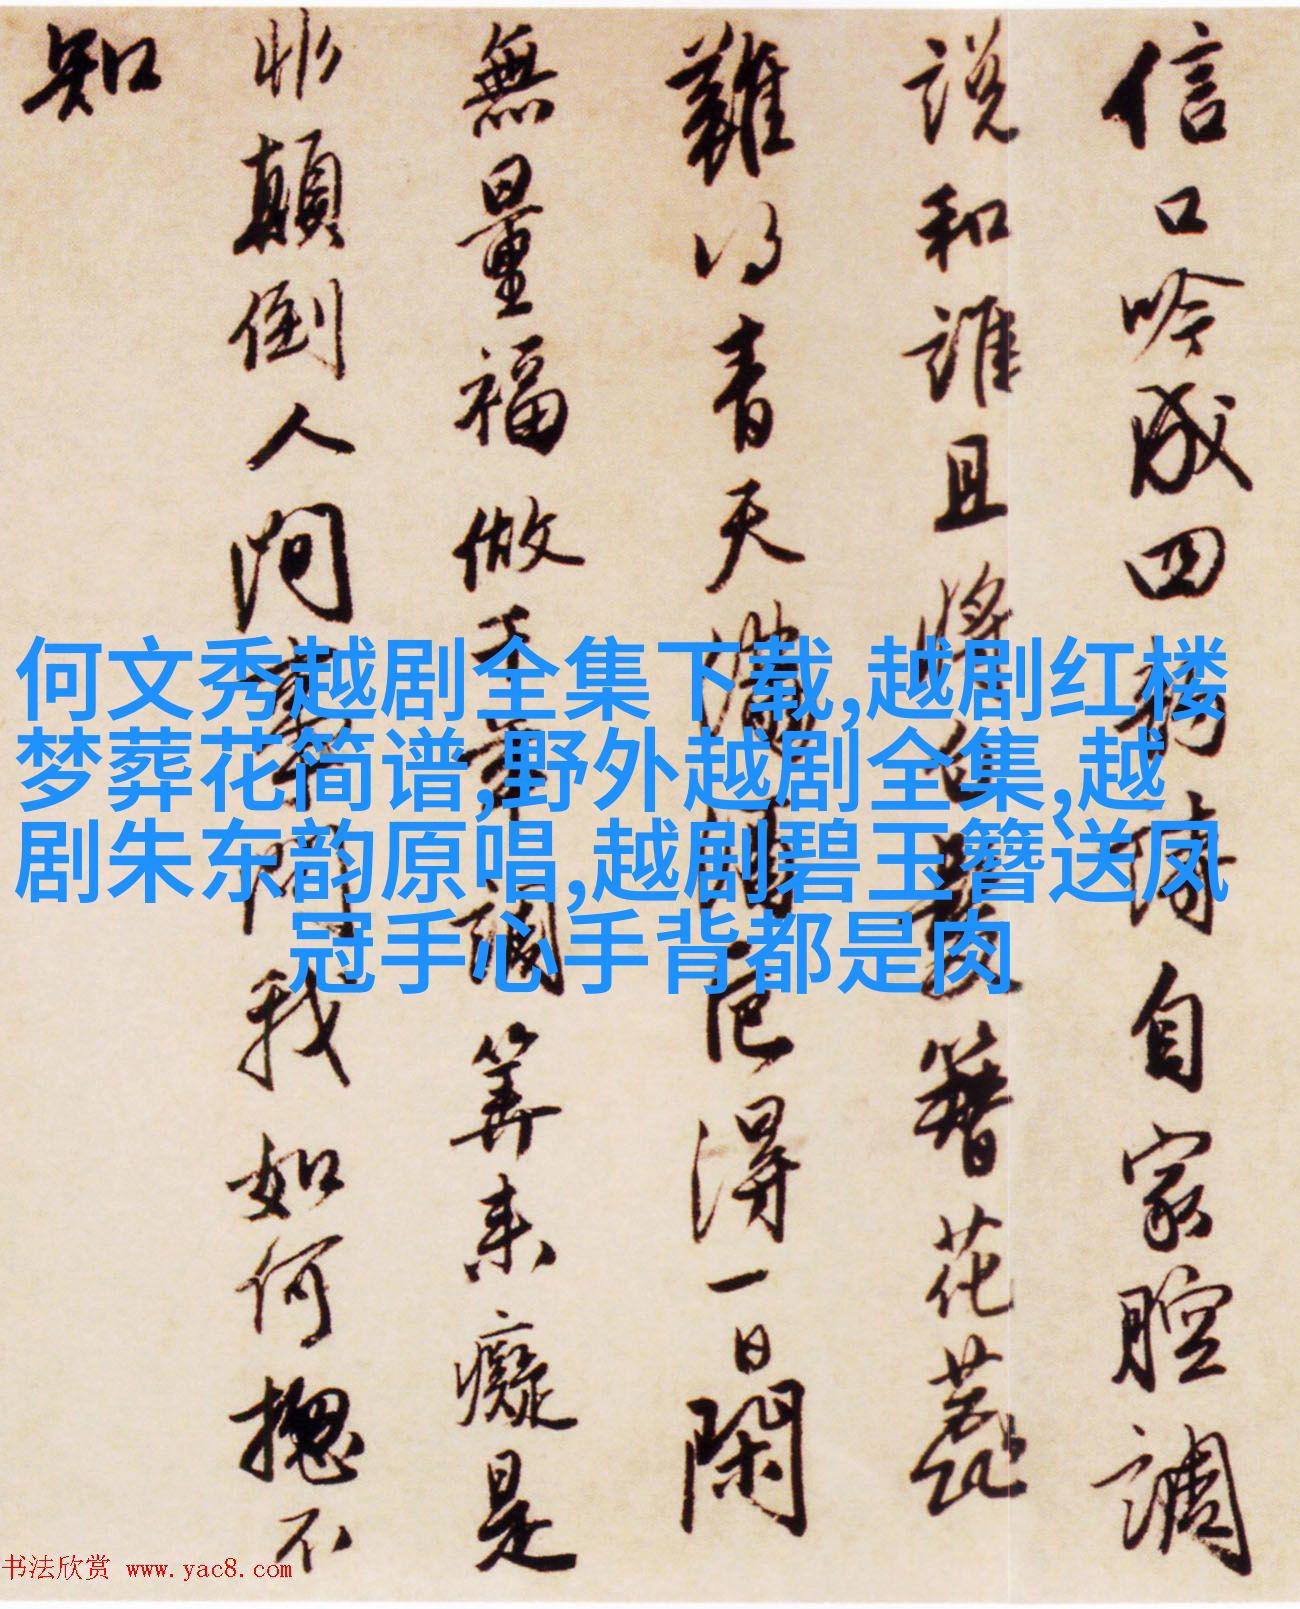 信口吟成四韻詩自家腔調
說和誰且將白髮簪花蕊
難得青天滿酒卮得一日閑
無量福做千年調算来癡是
非顛倒人間事問我如何摠不
知
何文秀越剧全集下载,越剧红楼
梦葬花简谱,野外越剧全集,越
剧朱东韵原唱,越剧碧玉簪送凤
冠手心手背都是肉
书法欣赏 www.yac8.com